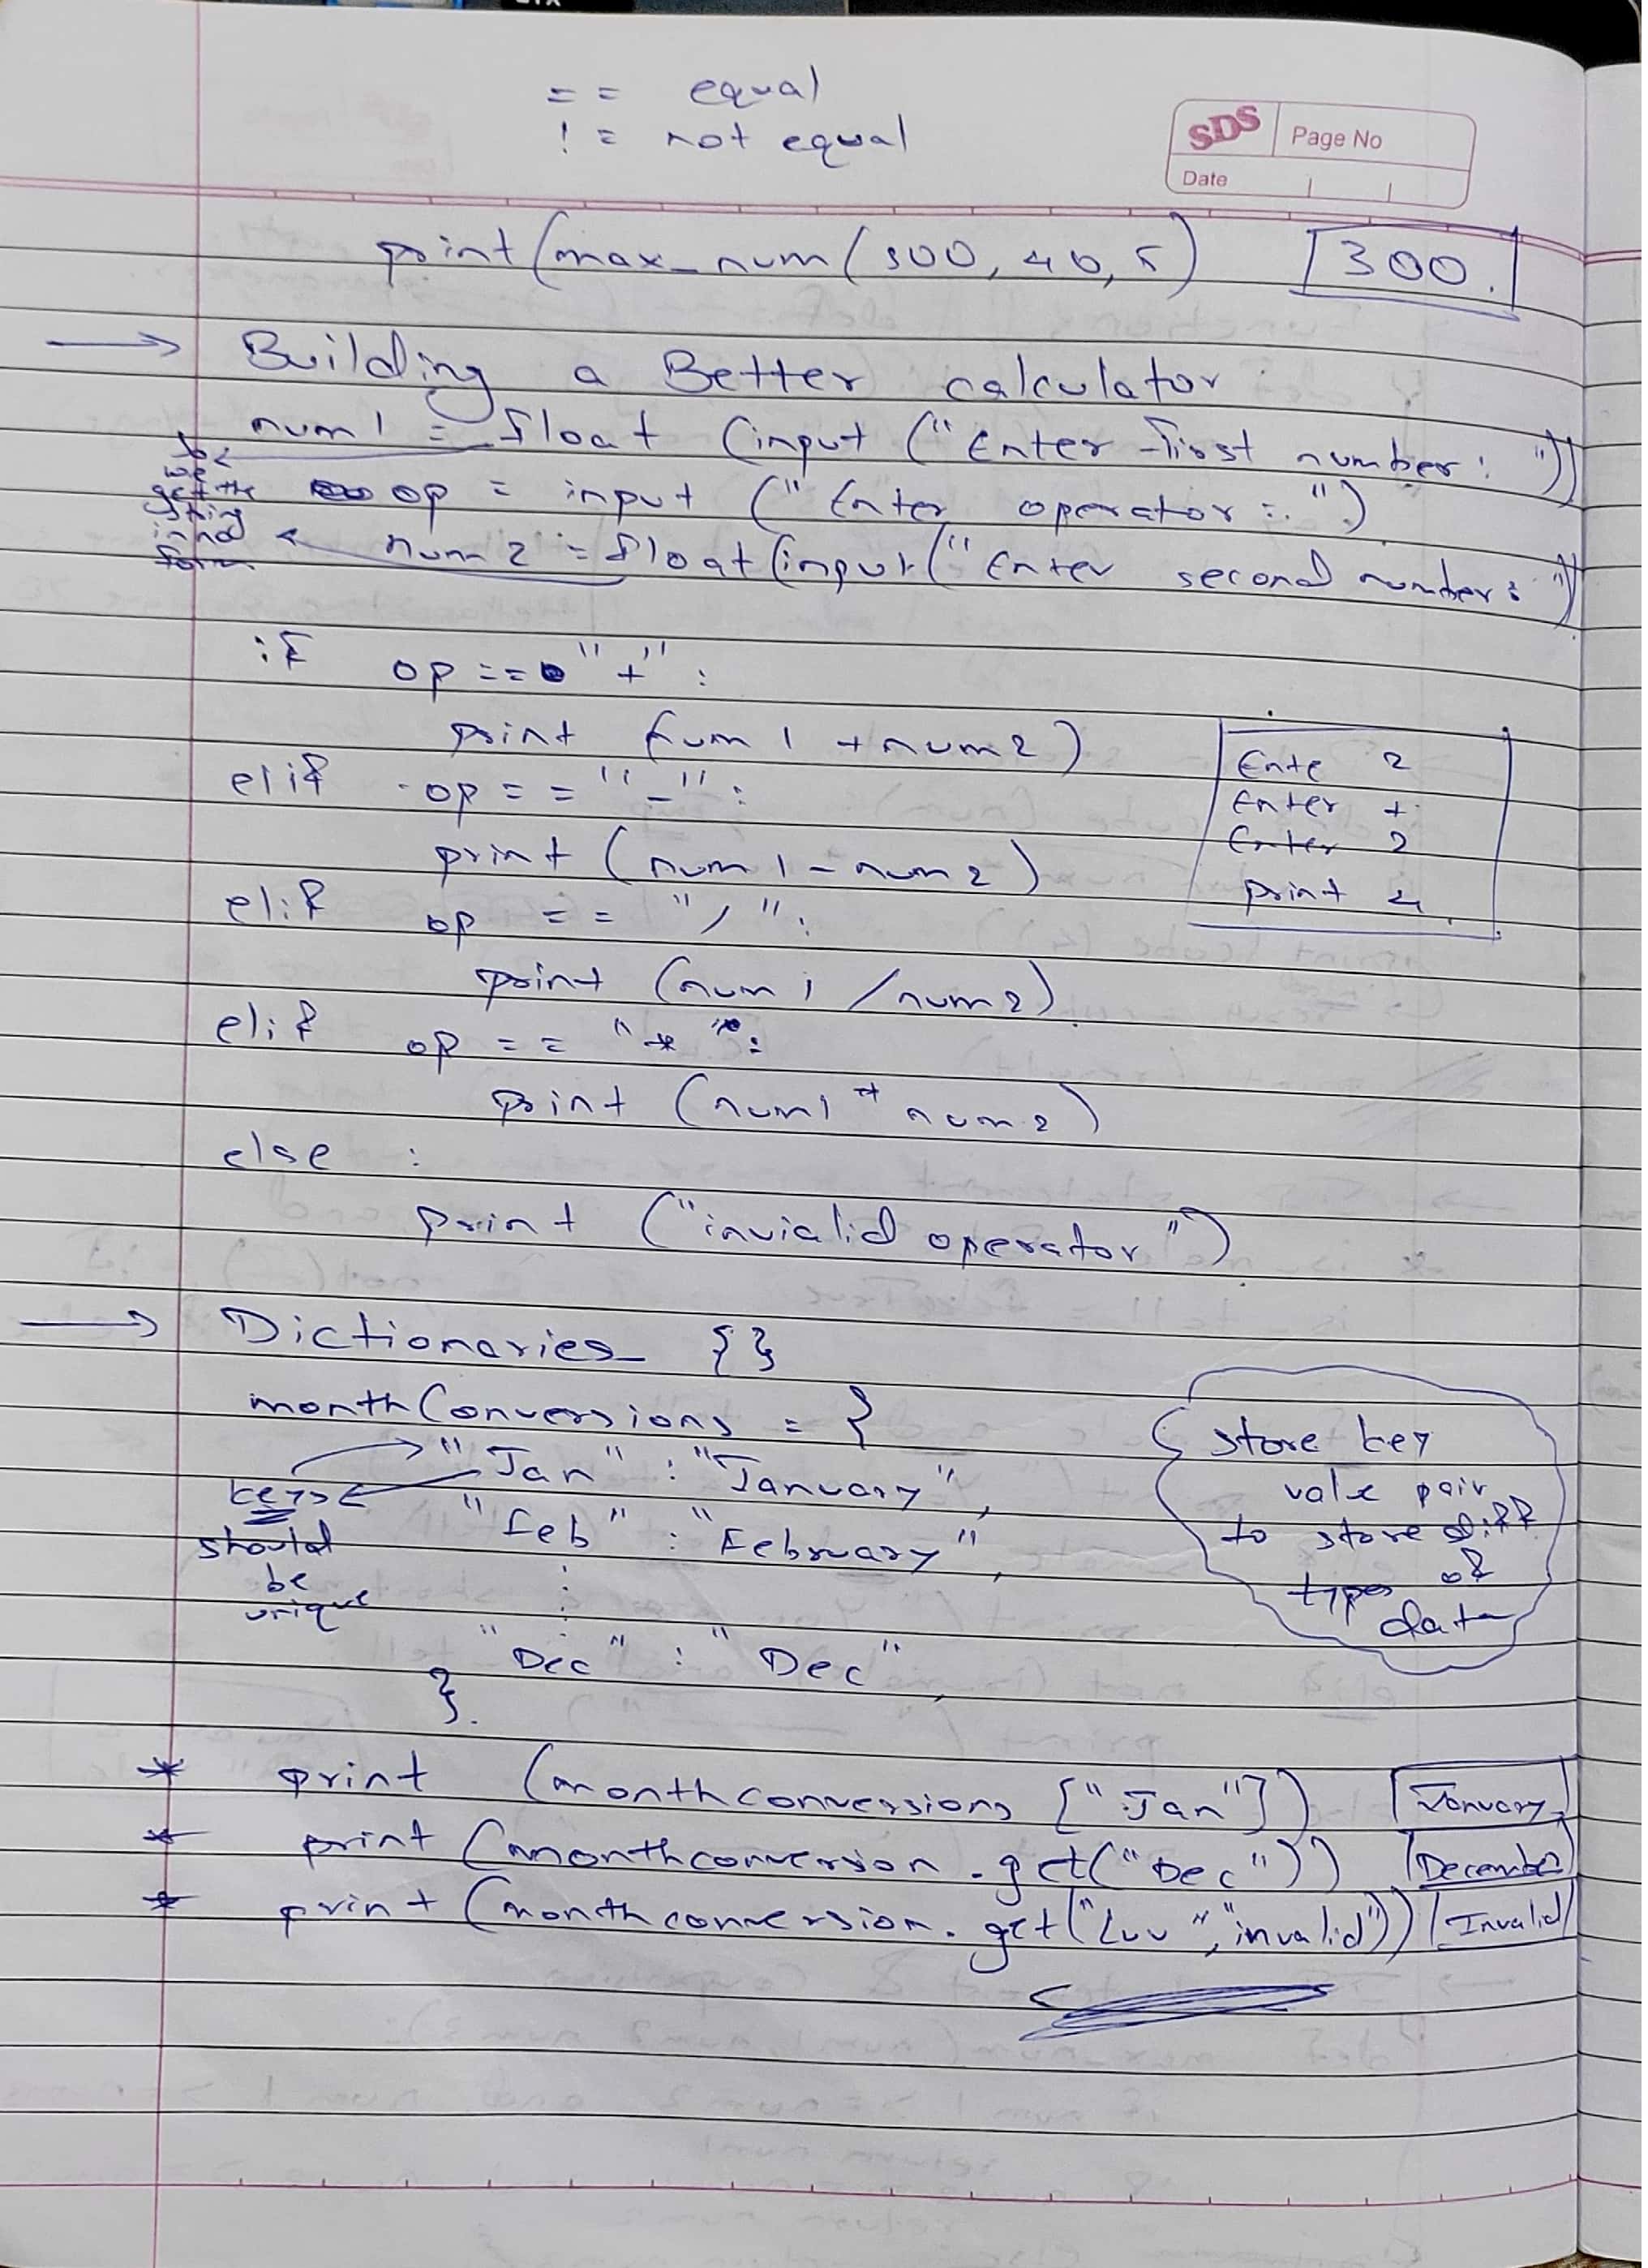 = = equal
! = not equal
SDS Page No
Date
print(max_num(300, 40, 5) 300.
→ Building a Better calculator
num1 = float (input ("Enter First number: "))
op = input ("Enter operator: ")
num2 = float(input("Enter second number: "))
we
get the
string
in no
form
if op == "+" :
print (num1 + num2)
elif op == "-" :
print (num1 - num2)
elif op == "/" :
print (num1 / num2)
elif op == "*" :
print (num1 * num2)
else :
print ("invialid operator")
Ente 2
Enter +
Enter 2
print 4.
→ Dictionaries {}
monthConversions = {
"Jan" : "January",
"Feb" : "February",
:
:
"Dec" : "Dec",
}.
keys
should
be
unique
store key
value pair
to store diff
types of
data
* print (monthconversions ["Jan"]) January
* print (monthconversion.get("Dec")) December
* print (monthconversion.get("Luv", "invalid")) Invalid